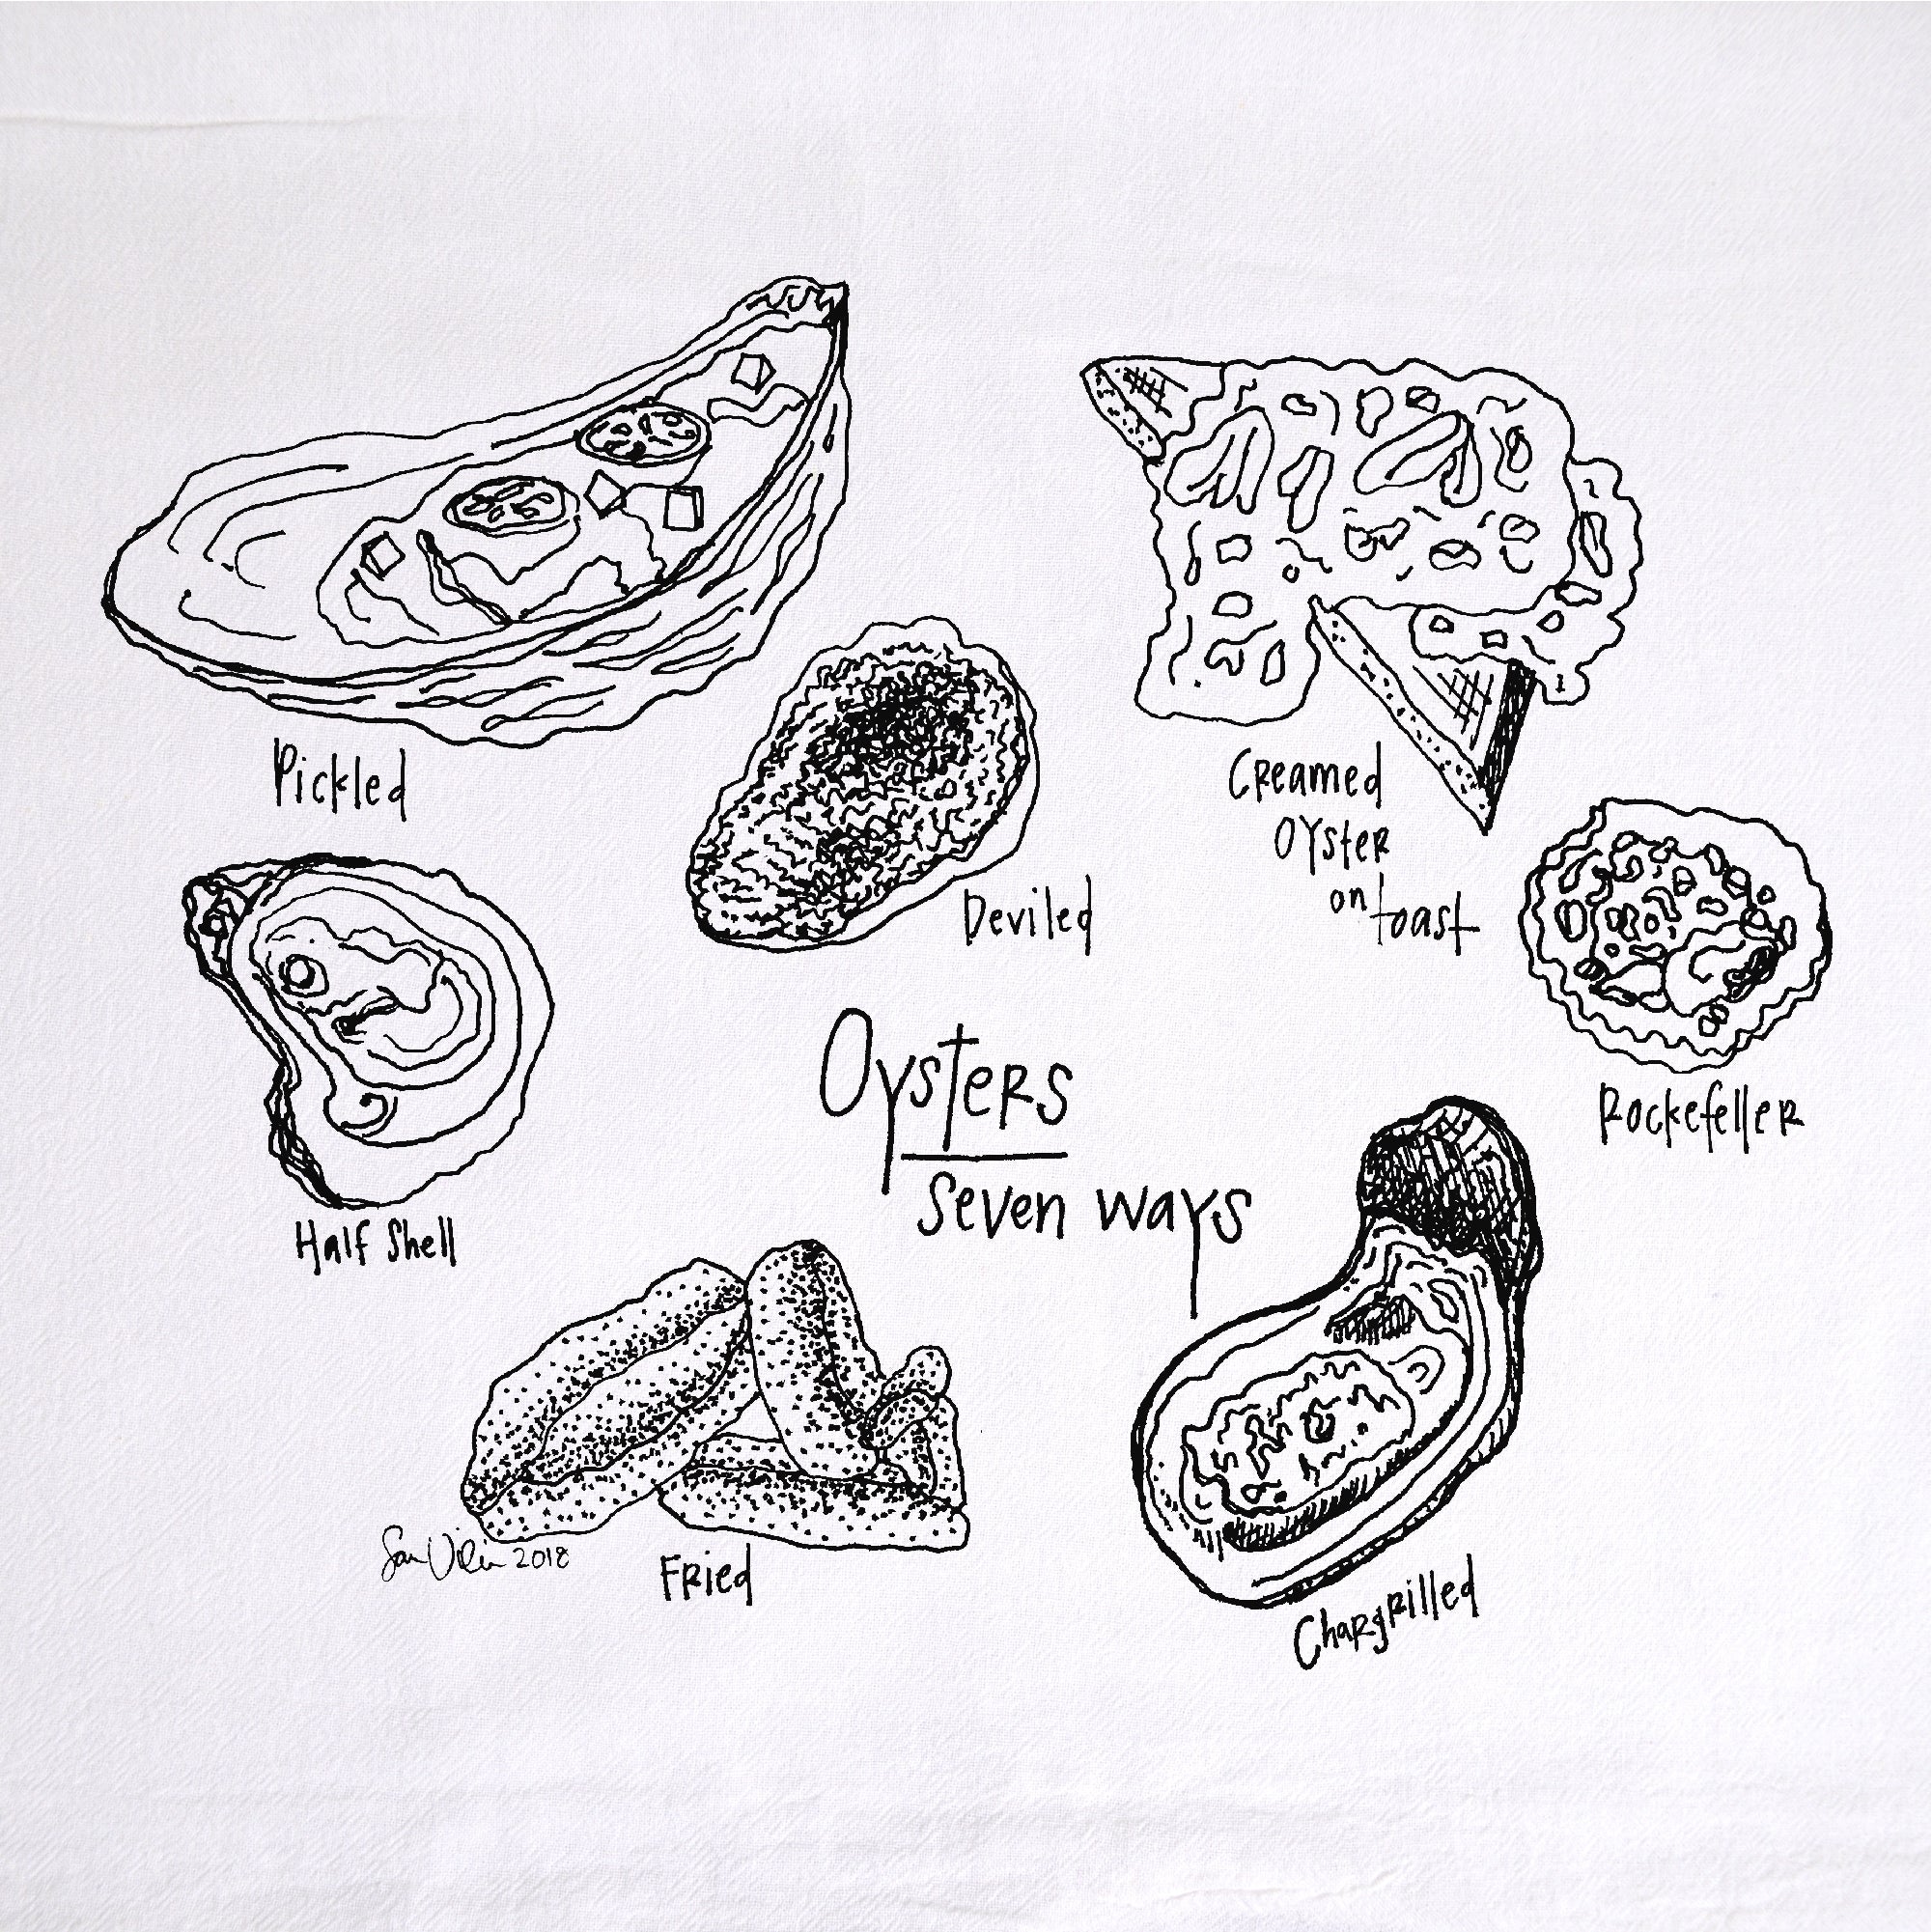 Pickled
Deviled
Creamed
Oyster
on toast
Half Shell
Oysters
Seven ways
Rockefeller
Fried
2018
Chargrilled